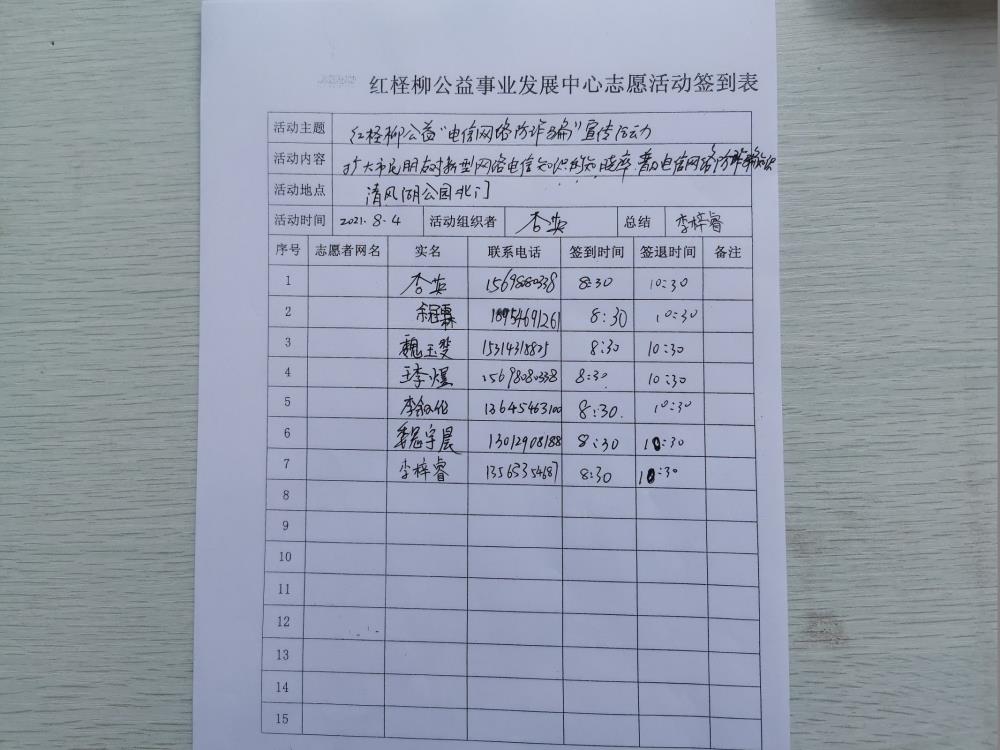 红柽柳公益事业发展中心志愿活动签到表
活动主题 红柽柳公益“电信网络防诈骗”宣传活动
活动内容 扩大市民朋友对新型网络电信知识的知晓率,普及电信网络防诈骗知识
活动地点 清风湖公园北门
活动时间 2021.8.4 活动组织者 杏英 总结 李梓睿
序号 志愿者网名 实名 联系电话 签到时间 签退时间 备注
1 杏英 15698080338 8:30 10:30
2 18954691261 8:30 10:30
3 魏玉斐 15314318825 8:30 10:30
4 王李煜 15698080338 8:30 10:30
5 13645463100 8:30. 10:30
6 13012908188 8:30 10:30
7 李梓睿 13563354687 8:30 10:30
8
9
10
11
12
13
14
15